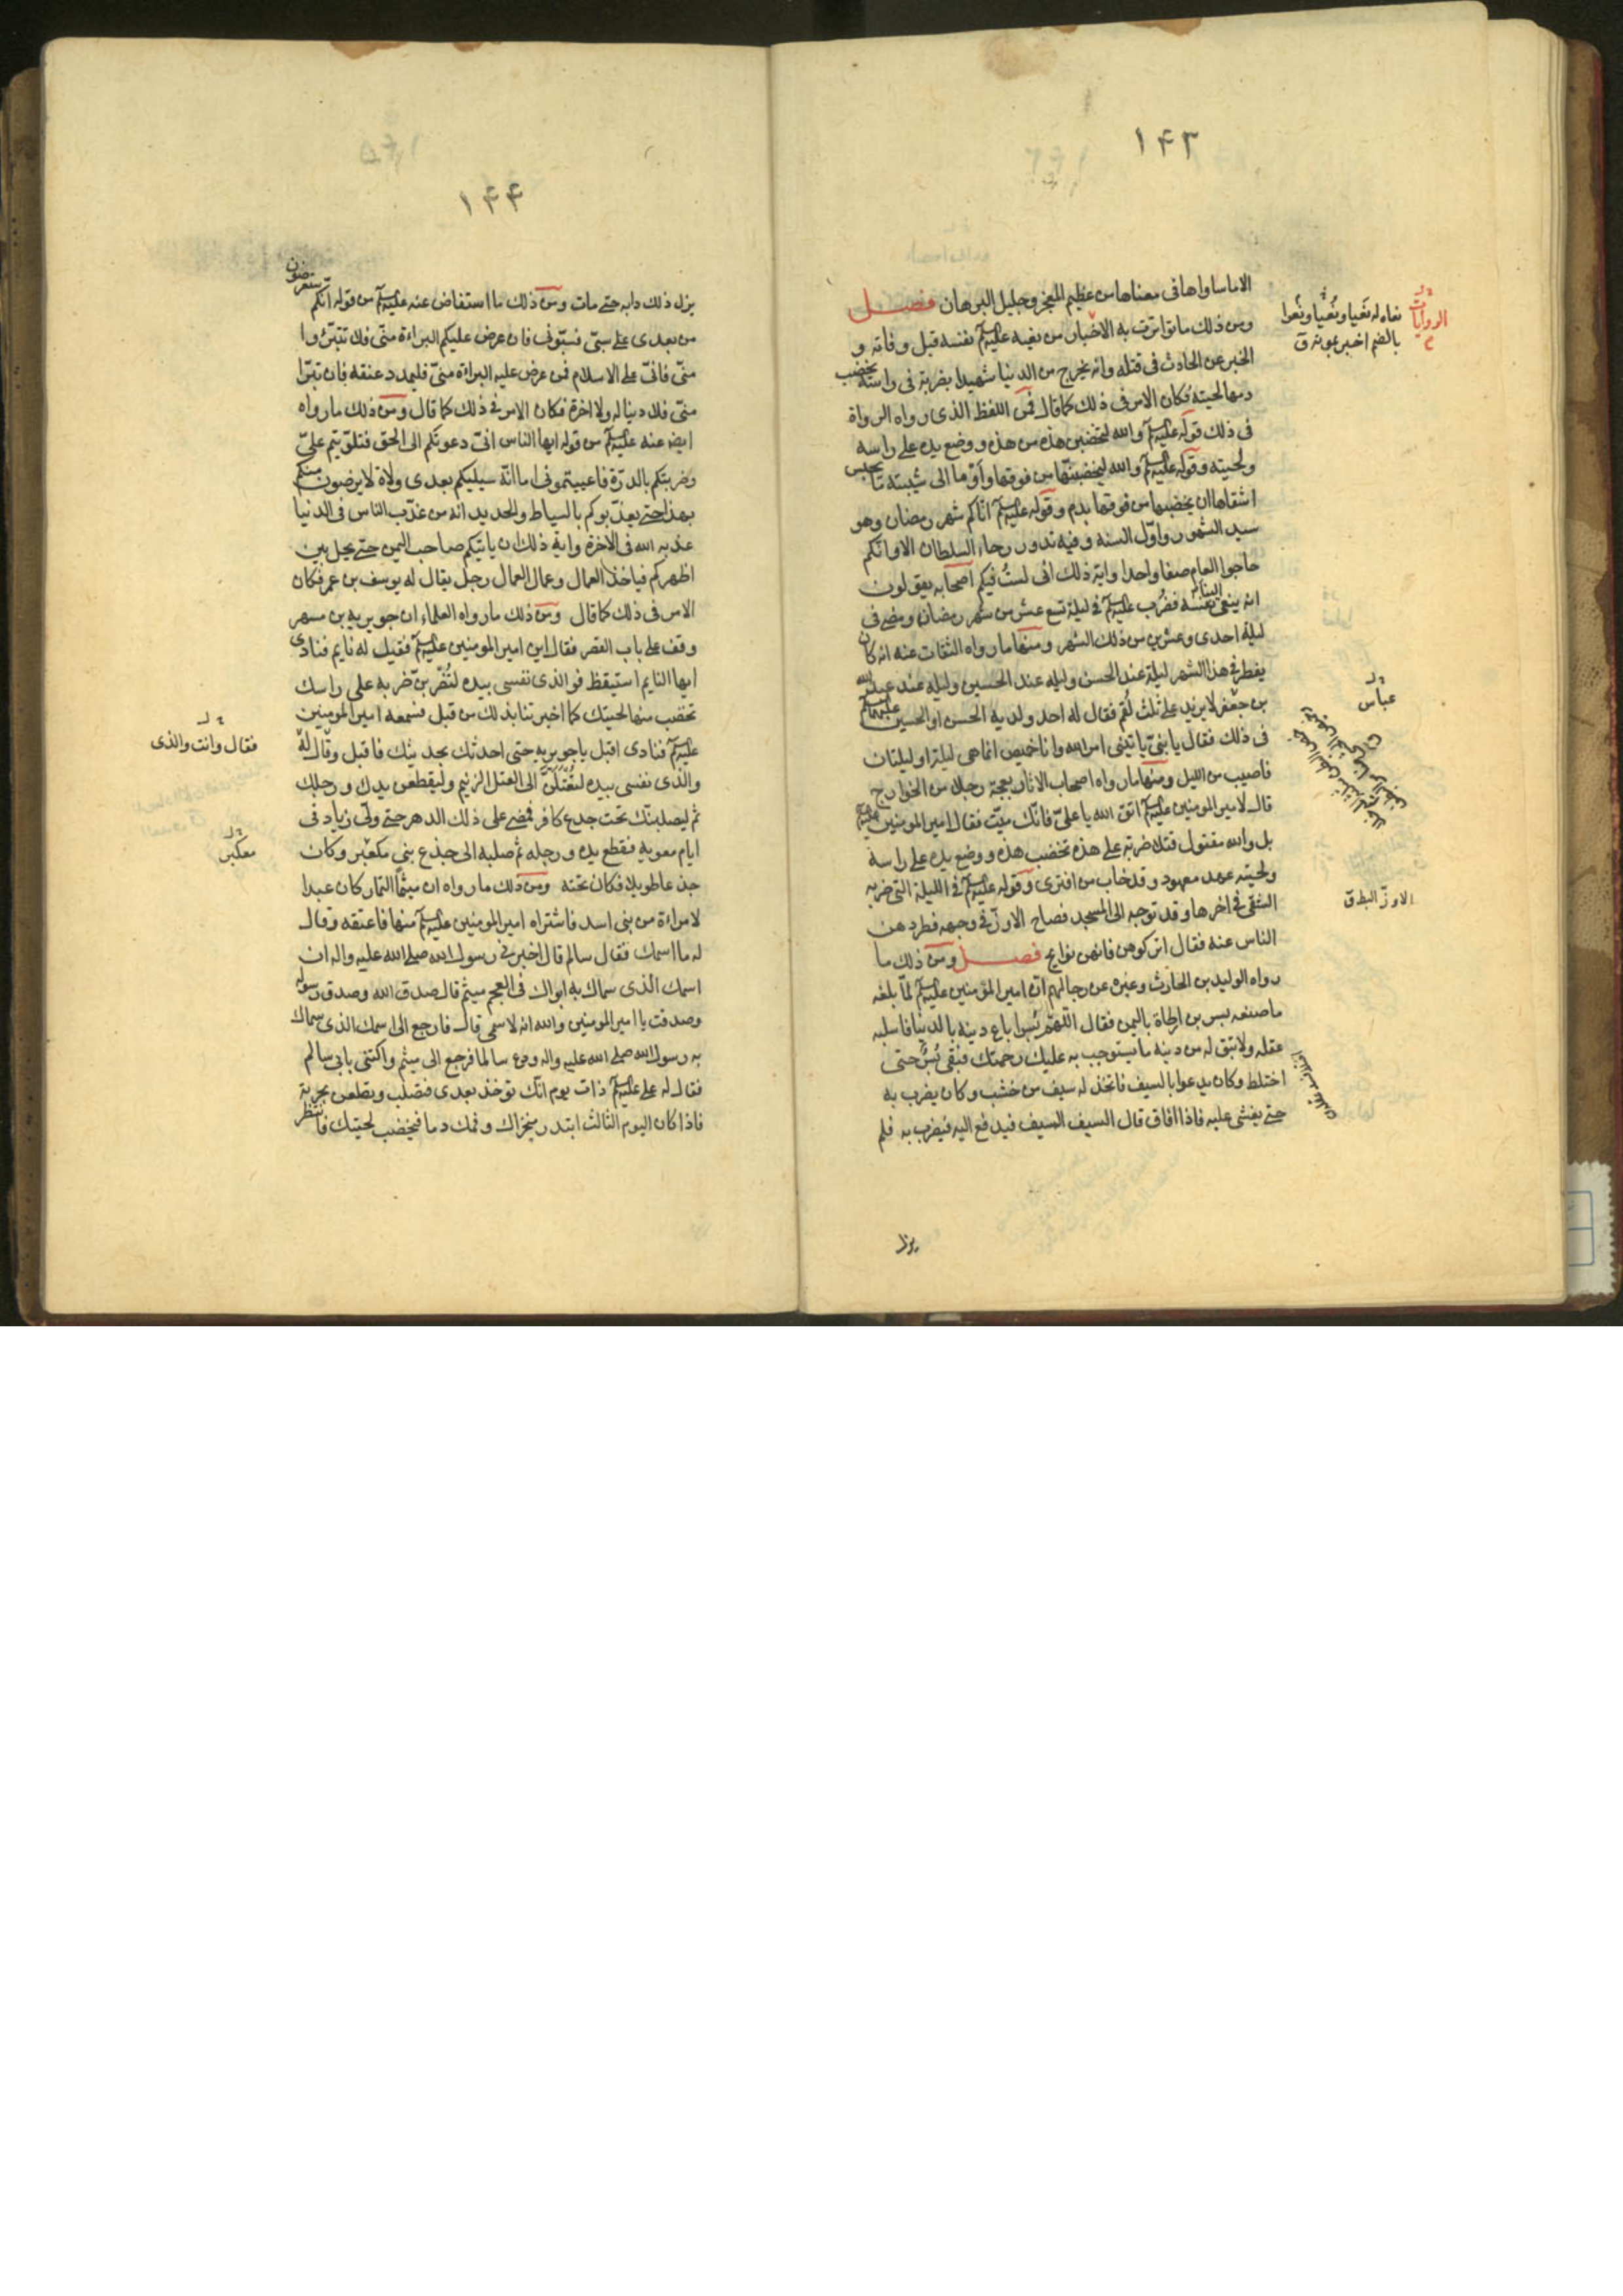 ١٤٣
الا ما ساواها في معناها من عظيم المعجز وجليل البرهان فصل
ومن ذلك ما تواترت به الاخبار من نعيه عليه السلم نفسه قبل وفاته و
الخبر عن الحادث في قتله وانه يخرج من الدنيا شهيدا بضربة في راسه يخضب
دمها لحيته فكان الامر في ذلك كما قال فمن اللفظ الذي رواه الرواة
في ذلك قوله عليه السلم والله لتخضبن هذه من هذه ووضع يده على راسه
ولحيته وقوله عليه السلم والله ليخضبنها من فوقها واوما الى شيبته ما يحبس
اشقاها ان يخضبها من فوقها بدم وقوله عليه السلم اتاكم شهر رمضان وهو
سيد الشهور واول السنه وفيه تدور رحاء السلطان الا وانكم
حاجوا العام صفا واحدا واية ذلك اني لست فيكم اصحابه يقولون
انه ينعى الينا نفسه فضرب عليه السلم في ليلة تسع عشر من شهر رمضان ومضى في
ليلة احدى وعشرين من ذلك الشهر ومنها ما رواه الثقات عنه انه كان
يفطر في هذا الشهر ليلة عند الحسن وليله عند الحسين وليله عند عبد الله
بن جعفر لا يزيد على ثلث لقم فقال له احد ولديه الحسن او الحسين عليهما السلم
في ذلك فقال يا بني ياتيني امر الله وانا خميص انما هي ليلة او ليلتان
فاصيب من الليل ومنها ما رواه اصحاب الاثار بعجة رجلا من الخوارج
قال لامير المومنين عليه السلم اتق الله يا علي فانك ميت فقال امير المومنين عليه السلم
بل والله مقتول قتلا ضربة على هذه تخضب هذه ووضع يده على راسه
ولحيته عهد معهود وقد خاب من افترى وقوله عليه السلم في الليلة التي ضربه
الشقي في اخرها وقد توجه الى المسجد فصاح الاوز في وجهه فطردهن
الناس عنه فقال اتركوهن فانهن نوايح فصل ومن ذلك ما
رواه الوليد بن الحارث وغيره عن رجالهم ان امير المؤمنين عليه السلم لما بلغه
ما صنعه بسر بن ارطاة باليمن فقال اللهم ان بسرا باع دينه بالدنيا فاسلبه
عقله ولا تبق له من دينه ما يستوجب به عليك رحمتك فبقي بسر حتى
اختلط وكان يدعوا بالسيف فاتخذ له سيف من خشب وكان يضرب به
حتى يغشى عليه فاذا افاق قال السيف السيف فيدفع اليه فيضرب به فلم
يزل
الروايات
نعاه له نعيا ونعيا ونعوا
بالضم اخبر بموته ق
عباس
الاوز البط ق
١٤٤
يزل ذلك دابه حتى مات ومن ذلك ما استفاض عنه عليه السلم من قوله انكم ستعرضون
من بعدي على سبي فسبوني فان عرض عليكم البراءة مني فلا تتبرءوا
مني فاني على الاسلام فمن عرض عليه البراءة مني فليمدد عنقه فان تبرا
مني فلا دنيا له ولا اخرة فكان الامر في ذلك كما قال ومن ذلك ما رواه
ايضا عنه عليه السلم من قوله ايها الناس اني دعوتكم الى الحق فتلويتم علي
وضربتكم بالدرة فاعييتموني اما انه سيليكم بعدي ولاة لا يرضون منكم
بهذا حتى يعذبوكم بالسياط والحديد انه من عذب الناس في الدنيا
عذبه الله في الاخرة واية ذلك ان ياتيكم صاحب اليمن حتى يحل بين
اظهركم فياخذ العمال وعمال العمال رجل يقال له يوسف بن عمر فكان
الامر في ذلك كما قال ومن ذلك ما رواه العلماء ان جويريه بن مسهر
وقف على باب القصر فقال اين امير المومنين عليه السلم فقيل له نايم فنادى
ايها النايم استيقظ فوالذي نفسي بيده لتضربن ضربه على راسك
تخضب منها لحيتك كما اخبرتنا بذلك من قبل فسمعه امير المومنين
عليه السلم فنادى اقبل يا جويريه حتى احدثك بحديثك فاقبل وقال له
والذي نفسي بيده لتعتلن الى العتل الزنيم وليقطعن يدك ورجلك
ثم ليصلبنك تحت جذع كافر فمضى على ذلك الدهر حتى ولي زياد في
ايام معوية فقطع يده ورجله ثم صلبه الى جذع بني مكعبر وكان
جذعا طويلا فكان تحته ومن ذلك ما رواه ان ميثما التمار كان عبدا
لامراءة من بني اسد فاشتراه امير المومنين عليه السلم منها فاعتقه وقال
له ما اسمك فقال سالم قال اخبرني رسول الله صلى الله عليه واله ان
اسمك الذي سماك به ابواك في العجم ميثم قال صدق الله وصدق رسوله
وصدقت يا امير المومنين والله انه لاسمي قال فارجع الى اسمك الذي سماك
به رسول الله صلى الله عليه واله ودع سالما فرجع الى ميثم واكتنى بابي سالم
فقال له علي عليه السلم ذات يوم انك تؤخذ بعدي فتصلب وتطعن بحربة
فاذا كان اليوم الثالث ابتدر منخراك وفمك دما فيخضب لحيتك فانتظر
فقال وانت والذي
معكبر